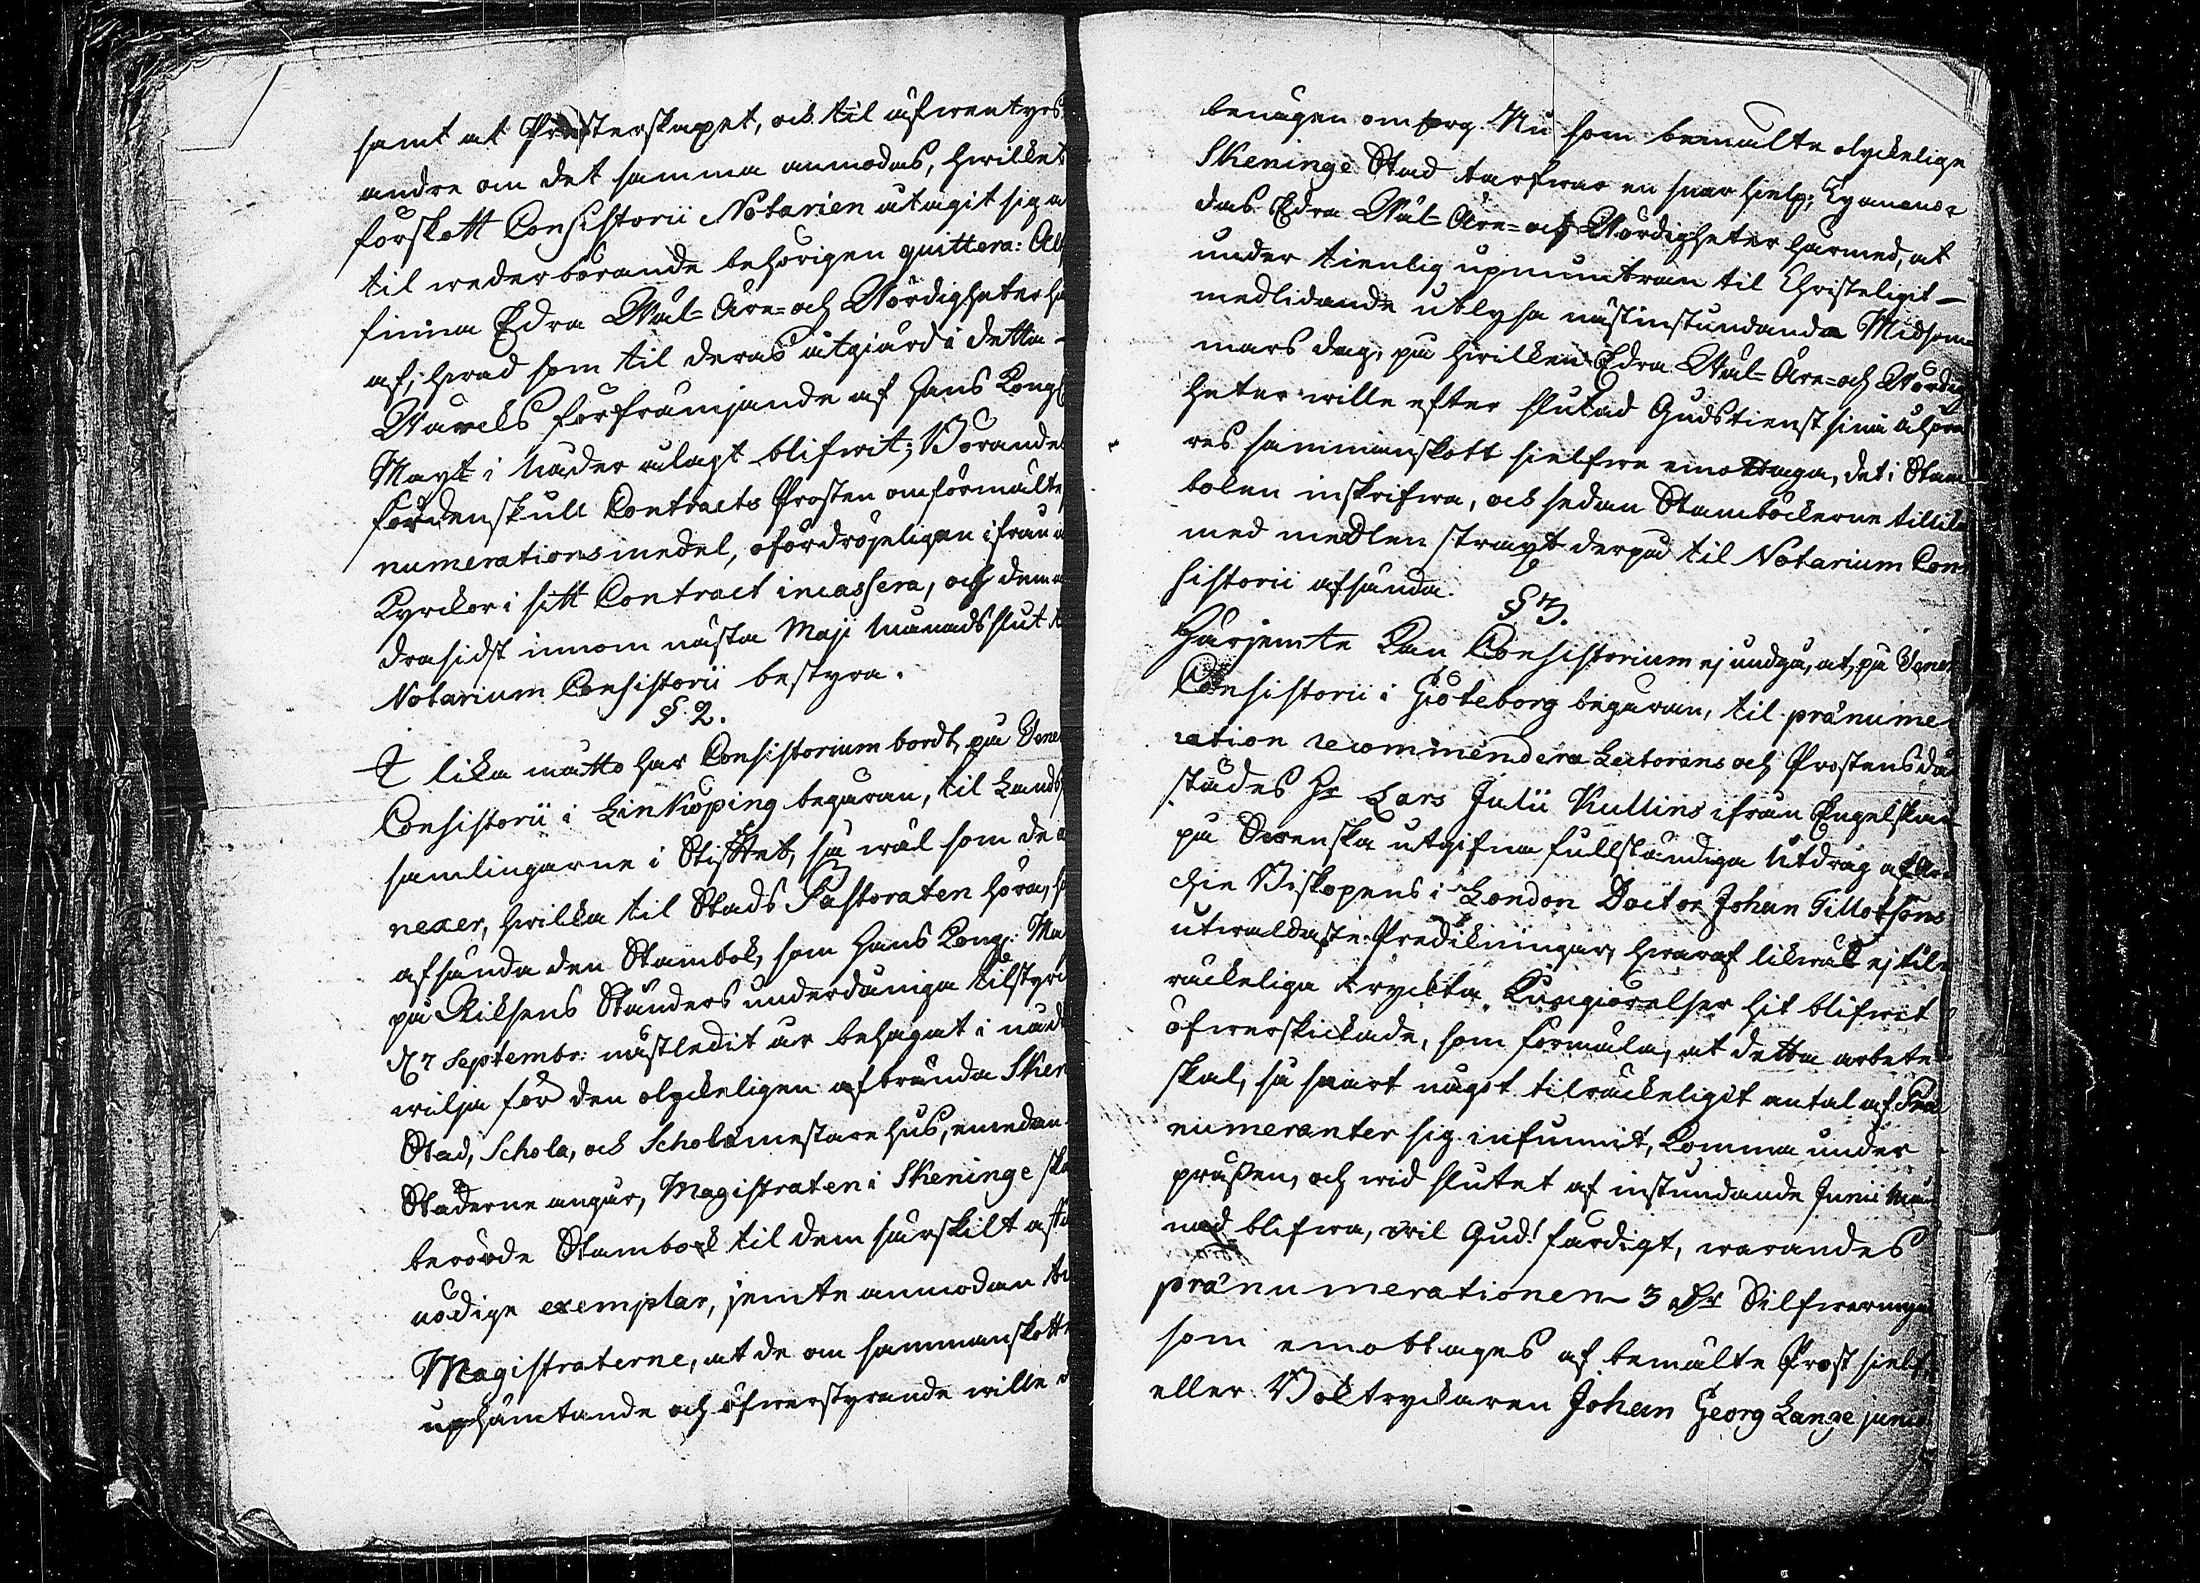 samt at Presterskapet, och til äfwentyrs
andre om det samma anmodas, hwilket
förskott Consistorii Notarien åtagit sig a
til wederbörande behörigen quittera: Als
finna Edra Wäl-Äre- och Wördigheter ha
af, hwad som til deras åtgiärd i detta
Wärcks förfrämjande af Hans Kongl
Mayt i Nåder ålagt blifwit; Börande
fördenskull Contracts Prosten omförmälte
numerationsmedel, ofördröjeligen ifrån a
Kyrckor i sitt Contract incassera, och dem
drasidst innom nästa Maji Månads slut t
Notarium Consistorii bestyra.
§ 2.
I lika måtto har Consistorium bordt, på Vene
Consistorii i Linköping begäran, til Lands
samlingarne i Stiftet, så wäl som de a
nexer, hwilka til Stads Pastoraten höra,
afsända den Stambok, som Hans Kongl. Ma
på Riksens Ständers underdåniga tilstyrc
d. 7 Septembr: nästledit år behagat i nåd
wilja för den olyckeligen afbrända Sken
Stad, Schola, och Scholæmestare Hus, emedan
Städerne angår, Magistraten i Skeninge ska
berörde Stambock til dem särskilt afsta
nödige exemplar, jemte anmodan
Magistraterne, at de om sammanskotte
uphämtande och öfwerstyrande wille
benägen omsorg. Nu som bemälte olyckelige
Skeninge Stad tarfwar en snar hielp; Ty anmo-
das Edra Wäl-Äre- och Wördigheter härmed, at
under tienlig upmuntran til Christeligit
medlidande utlysa nästinstundande Midsom-
mars dag, på hwilken Edra Wäl-Äre- och Wördig
heter wille efter slutad Gudstienst sina åhöra
res sammanskott sielfwe emottaga, det i Stam
boken inskrifwa, och sedan Stamböckerne tillika
med medlen straxt derpå til Notarium Con-
sistorii afsända.
§ 3.
Härjemte kan Consistorium ej undgå, at, på Vener
Consistorii i Giöteborg begäran, til pränume-
ration recommendera Lectorens och Prostens där
städes Hr Lars Julii Kullins ifrån Engelskan
på Swenska utgifna fullständiga Utdrag af Är-
chie Biskopens i London Doctor Johan Tillotsons
utwaldaste Predikningar, hwaraf likwäl ej til-
räckeliga tryckta Kungiörelser hit blifwit
öfwerskickade, som förmäla, at detta arbete
skal, så snart något tilräckeligit antal af Prä
numeranter sig infunnit, komma under
prässen, och wid slutet af instundande Junii Må-
nad blifwa, wil Gud! färdigt, warandes
pränumerationen 3 dlr Silfwermynt
som emottages af bemälte Prost sielf
eller Boktryckaren Johan Georg Lange junio